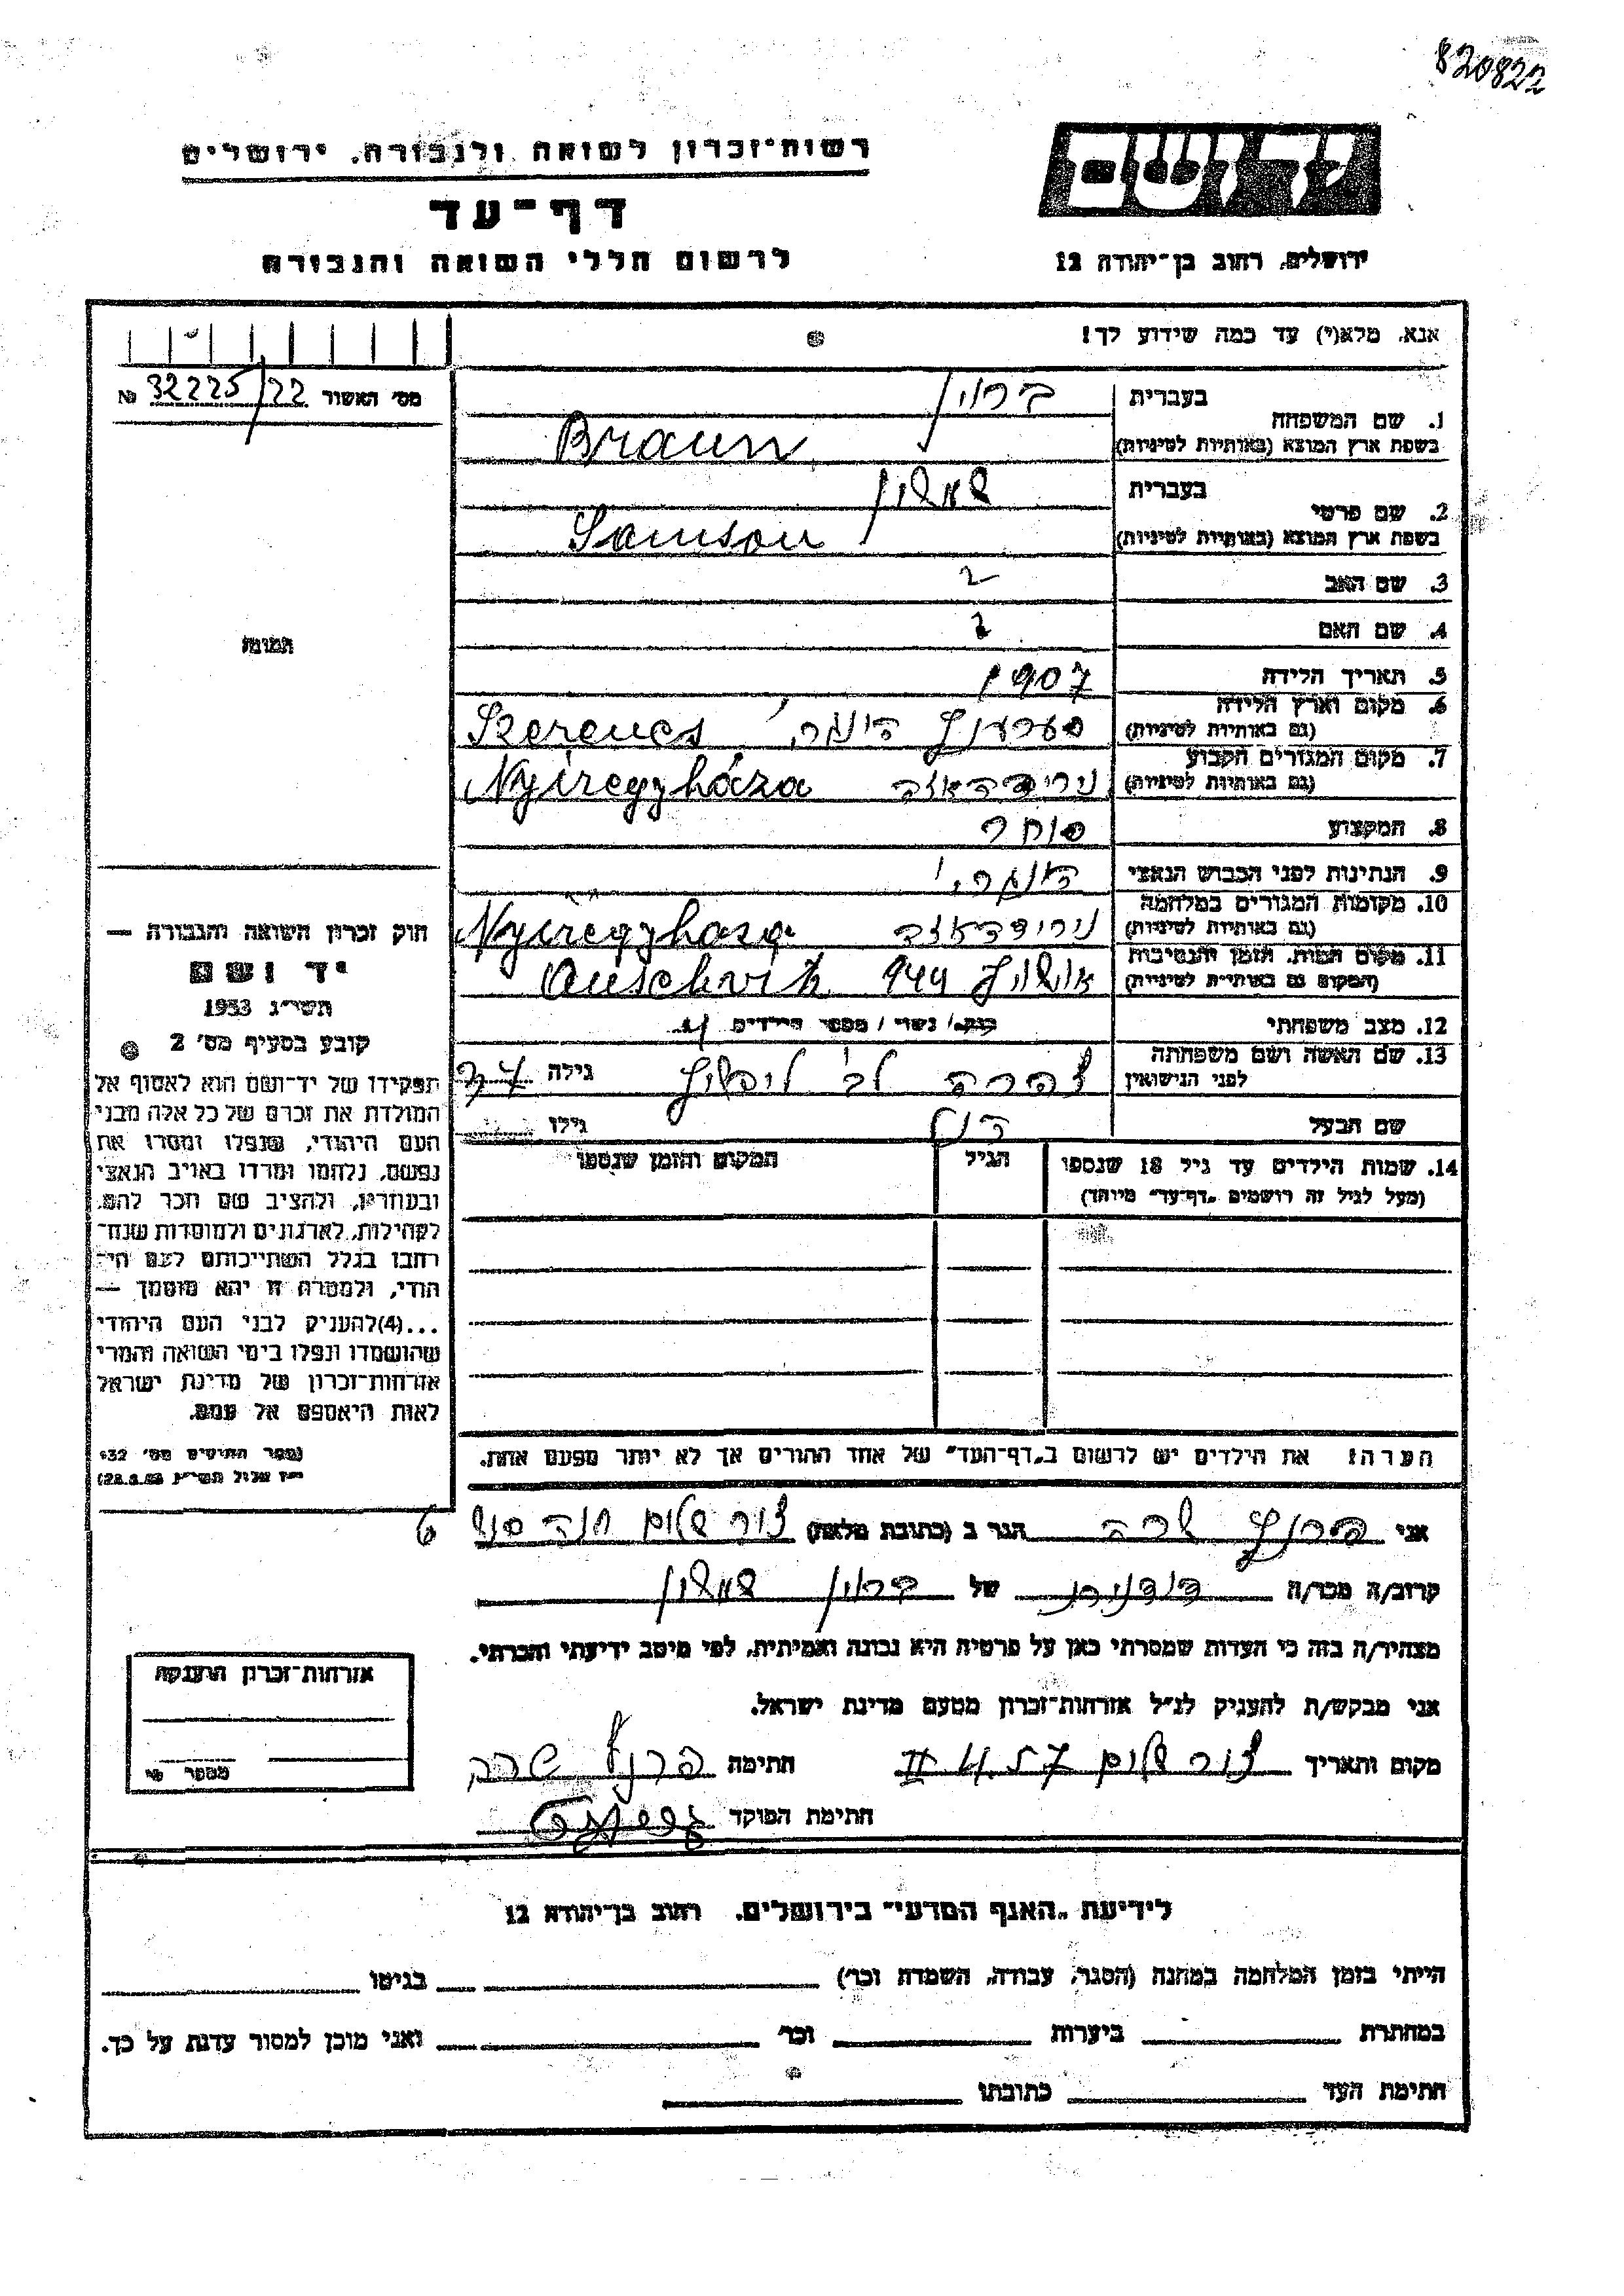 820822
יד ושם
רשות־זכרון לשואה ולגבורה, ירושלים
דף־עד
לרשום חללי השואה והגבורה
ירושלים, רחוב בן־יהודה 12
אנא, מלא(י) עד כמה שידוע לך!
מס׳ האשור 32225/22 №
1. שם המשפחה
בעברית
ברוין
בשפת ארץ המוצא (באותיות לטיניות)
Braun
2. שם פרטי
בעברית
שמשון
בשפת ארץ המוצא (באותיות לטיניות)
Samson
3. שם האב
4. שם האם
5. תאריך הלידה 1907
6. מקום וארץ הלידה
(גם באותיות לטיניות)
סערענץ Szerencs
7. מקום המגורים הקבוע
(גם באותיות לטיניות)
נירידהאזה Nyíregyháza
8. המקצוע סוחר
9. הנתינות לפני הכבוש הנאצי הונגרי
10. מקומות המגורים במלחמה
(גם באותיות לטיניות)
נירידהאזה Nyíregyhaza
11. מקום המות, הזמן והנסיבות
(המקום גם באותיות לטיניות)
אושויץ 944 Auschvitz
12. מצב משפחתי רוק/ נשוי / מספר הילדים
13. שם האשה ושם משפחתה
לפני הנישואין
גילה 37
שם הבעל גילו
14. שמות הילדים עד גיל 18 שנספו
(מעל לגיל זה רושמים „דף־עד״ מיוחד)
הגיל
המקום והזמן שנספו
הערה: את הילדים יש לרשום ב„דף־העד״ של אחד ההורים אך לא יותר מפעם אחת.
תמונה
חוק זכרון השואה והגבורה —
יד ושם
תשי״ג 1953
קובע בסעיף מס׳ 2
תפקידו של יד־ושם הוא לאסוף אל
המולדת את זכרם של כל אלה מבני
העם היהודי, שנפלו ומסרו את
נפשם, נלחמו ומרדו באויב הנאצי
ובעוזריו, ולהציב שם וזכר להם,
לקהילות, לארגונים ולמוסדות שנח־
רבו בגלל השתייכותם לעם הי־
הודי, ולמטרה זו יהא מוסמך —
...(4)להעניק לבני העם היהודי
שהושמדו ונפלו בימי השואה והמרי
אזרחות־זכרון של מדינת ישראל
לאות היאספם אל עמם.
(ספר החוקים מס׳ 132
י״ז אלול תשי״ג 28.8.53)
אני שרה הגר ב (כתובת מלאה) צור שלום 6
קרוב/ה מכר/ה של ברוין שמשון
מצהיר/ה בזה כי העדות שמסרתי כאן על פרטיה היא נכונה ואמיתית, לפי מיטב ידיעתי והכרתי.
אני מבקש/ת להעניק לנ״ל אזרחות־זכרון מטעם מדינת ישראל.
מקום ותאריך צור שלום חתימה שרה
חתימת הפוקד
אזרחות־זכרון הוענקה
מספר №
לידיעת „האגף המדעי״ בירושלים, רחוב בן־יהודה 12
הייתי בזמן המלחמה במחנה (הסגר, עבודה, השמדה וכו׳) בגיטו
במחתרת ביערות וכו׳ ואני מוכן למסור עדות על כך.
חתימת העד כתובתו